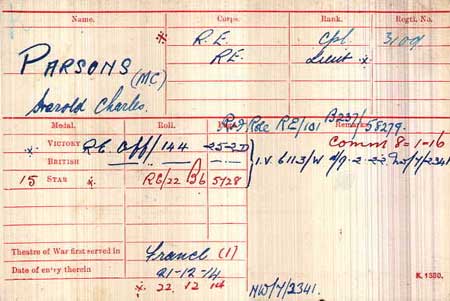 Name. Corps. Rank. Regtl. No.
* R.E. Cpl. 3109
PARSONS (MC) R.E. Lieut *
Harold Charles.
B237/58279.
Medal. Roll. Page. Remarks.
RE/101
Comm 8-1-16
* VICTORY RE Off/144 25-27
BRITISH — " — — " —
I.V. 6113/W d/9-2-22. NW/7/2341
15 STAR * RE/22 B6 5728
Theatre of War first served in France (1)
Date of entry therein 21-12-14
* 22. 12 14
NW/7/2341.
K. 1380.